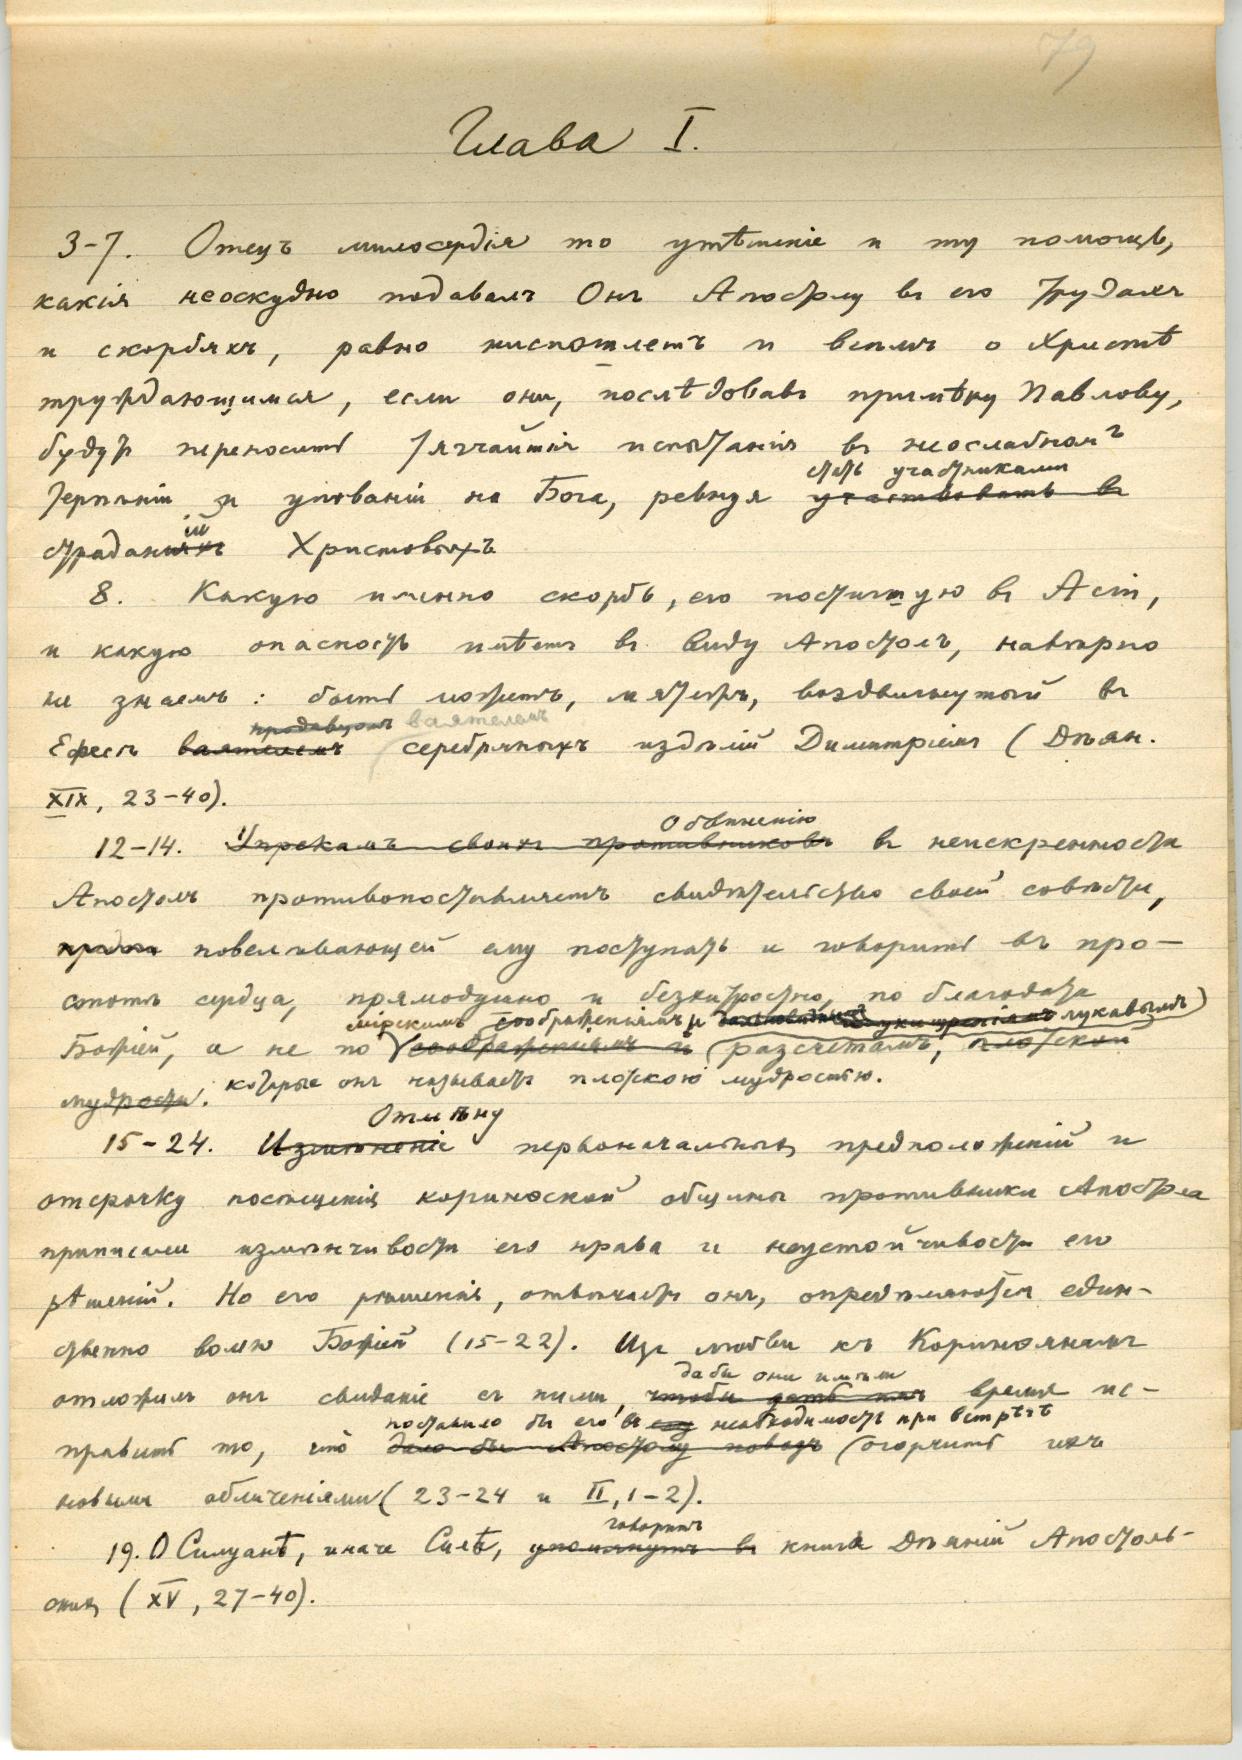 79
Глава I.
3-7. Отецъ милосердія то утѣшеніе и ту помощь,
какія неоскудно подавалъ Онъ Апостолу въ его трудахъ
и скорбяхъ, равно ниспошлетъ и всѣмъ о Христѣ
труждающимся, если они, послѣдовавъ примѣру Павлову,
будутъ переносить тягчайшія испытанія въ неослабномъ
стать участниками
терпѣніи и упованіи на Бога, ревнуя участвовать въ
ій
страданіяхъ Христовыхъ
8. Какую именно скорбь, его постигшую въ Асіи,
и какую опасность имѣетъ въ виду Апостолъ, навѣрно
не знаемъ: быть можетъ, мятежъ, воздвигнутый въ
продавцомъ ваятелемъ
Ефесѣ ваятелемъ серебряныхъ издѣлій Димитріемъ (Дѣян.
XIX, 23-40).
Обвиненію
12-14. Упрекамъ своихъ противниковъ въ неискренности
Апостолъ противопоставляетъ свидѣтельство своей совѣсти,
повелѣвающей ему поступать и говорить въ про-
стотѣ сердца, прямодушно и безхитростно, по благодати
мірскимъ соображеніямъ и лукавымъ
Божіей, а не по соображеніямъ и разсчетамъ, плотской
мудрости. которые онъ называетъ плотскою мудростью.
Отмѣну
15-24. Измѣненіе первоначальныхъ предположеній и
отсрочку посѣщенія коринѳской общины противники Апостола
приписали измѣнчивости его нрава и неустойчивости его
рѣшеній. Но его рѣшенія, отвѣчаетъ онъ, опредѣляются един-
ственно волею Божіей (15-22). Изъ любви къ Коринѳянамъ
дабы они имѣли
отложилъ онъ свиданіе съ ними чтобы дать имъ время ис-
поставило бы его въ необходимость при встрѣчѣ
править то, что дало бы Апостолу поводъ огорчить ихъ
новыми обличеніями (23-24 и II, 1-2).
говоритъ
19. О Силуанѣ, иначе Силѣ, упомянутъ въ книга Дѣяній Апостоль-
скихъ (XV, 27-40).